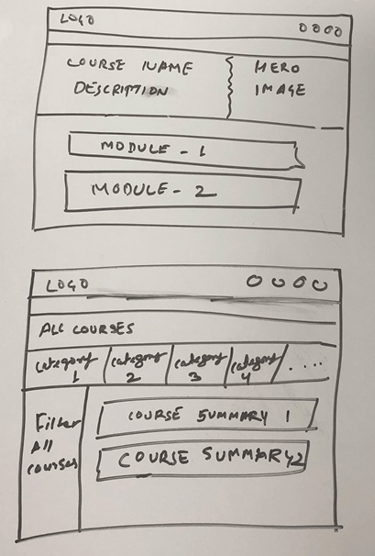 LOGO
COURSE NAME
DESCRIPTION
HERO
IMAGE
MODULE - 1
MODULE - 2
LOGO
ALL COURSES
category
1
category
2
category
3
category
4
. . . .
Filter
All
courses
COURSE SUMMARY 1
COURSE SUMMARY 2